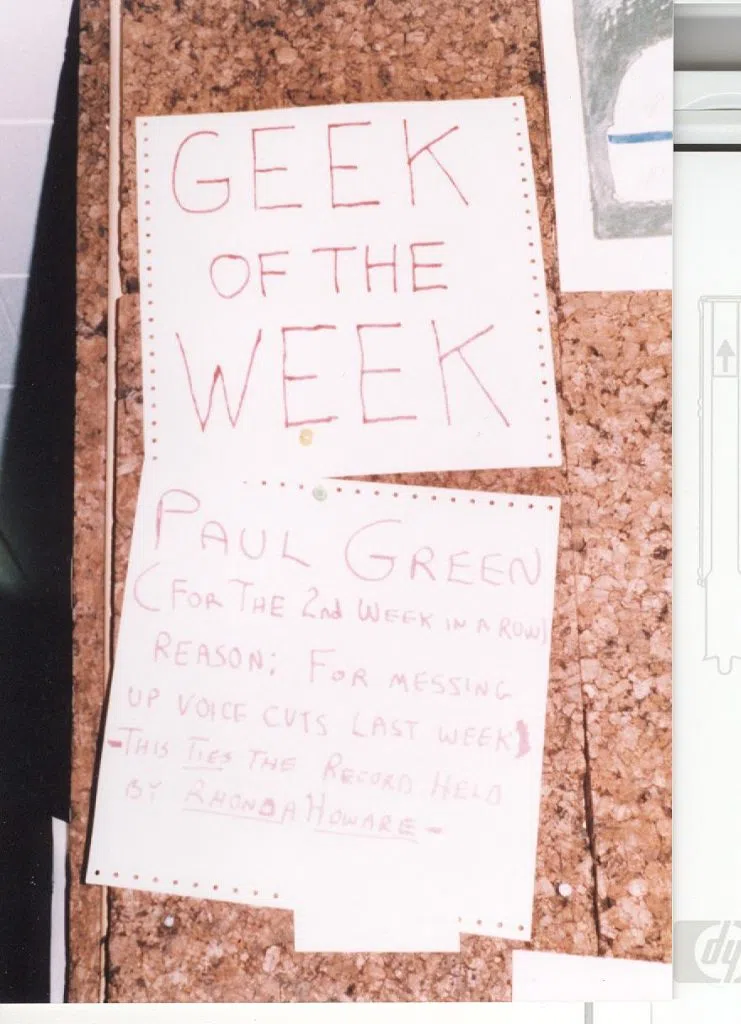 GEEK
OF THE
WEEK
PAUL GREEN
(FOR THE 2nd WEEK IN A ROW)
REASON: FOR MESSING
UP VOICE CUTS LAST WEEK)
-THIS TIES THE RECORD HELD
BY RHONDA HOWARE-